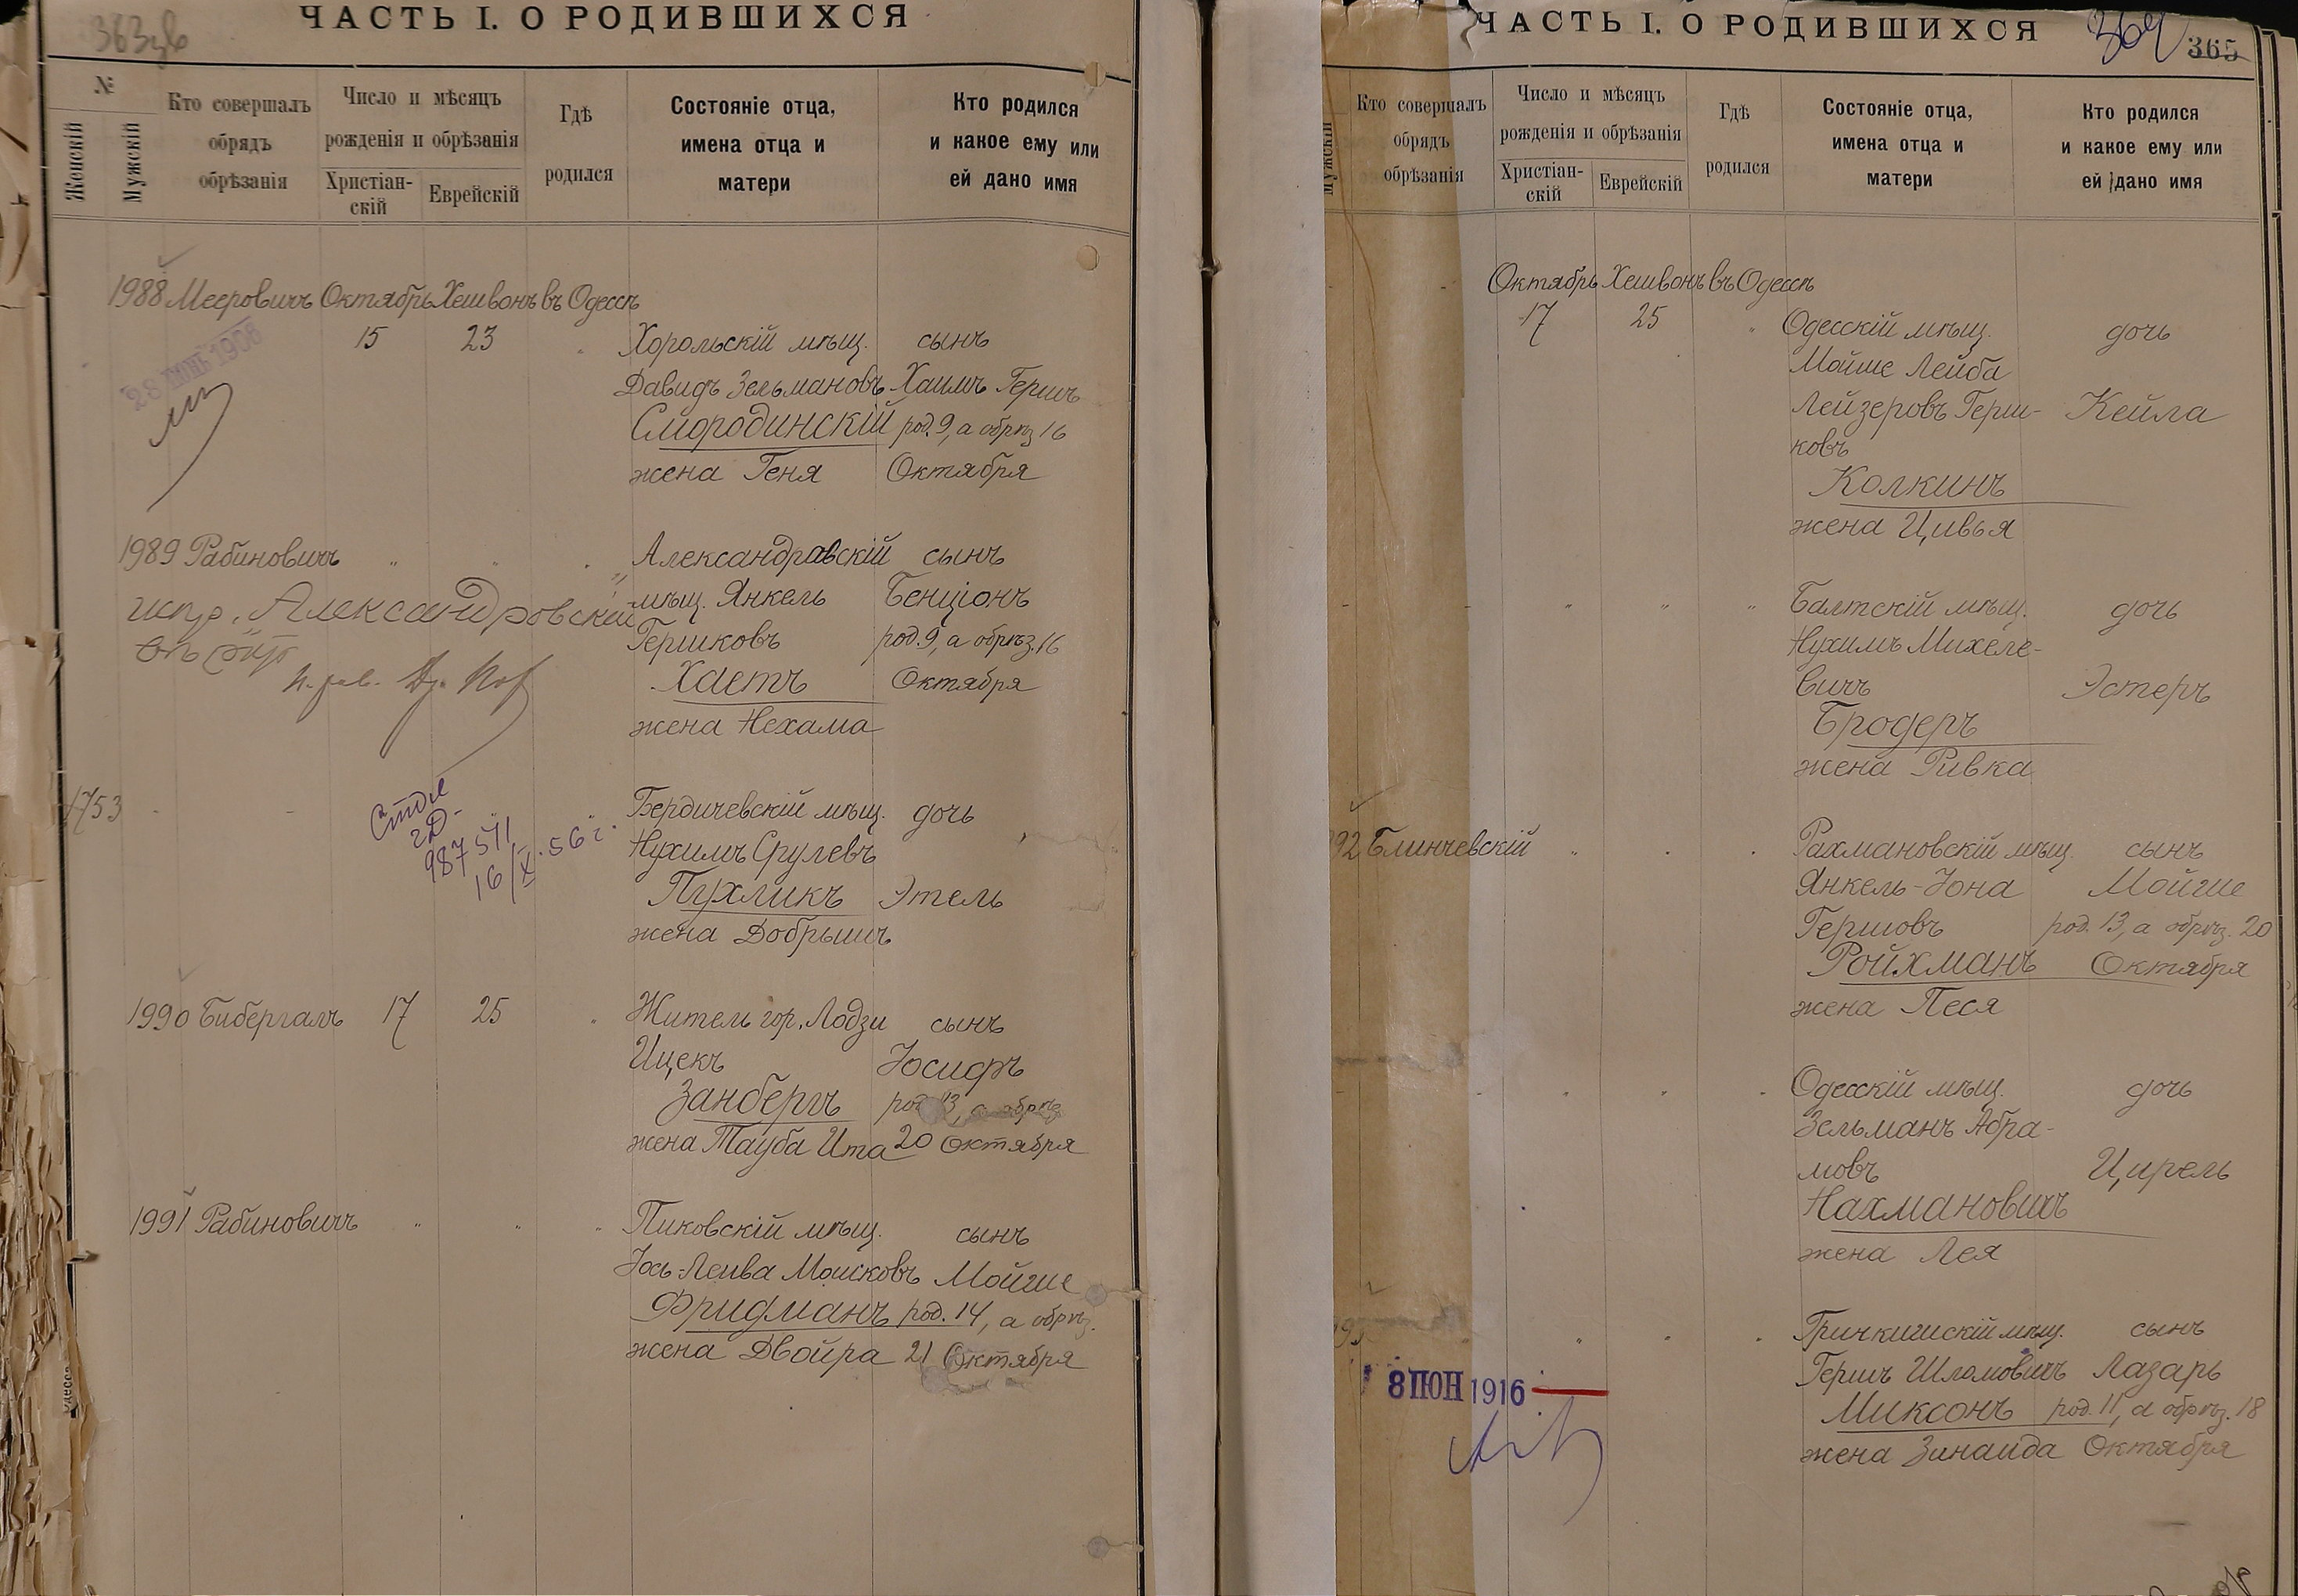 363
ЧАСТЬ I. О РОДИВШИХСЯ
№
Женскій
Мужскій
Кто совершалъ
обрядъ
обрѣзанія
Число и мѣсяцъ
рожденія и обрѣзанія
Христіан-
скій
Еврейскій
Гдѣ
родился
Состояніе отца,
имена отца и
матери
Кто родился
и какое ему или
ей дано имя
1988 Мееровичъ Октябрь Хешвонъ въ Одессѣ
15 23 Хорольскій мѣщ. сынъ
28 1908
Давидъ Зельмановъ Хаимъ Гершъ
Смородинскій род. 9, а обрѣз 16
жена Геня Октября
1989 Рабиновичъ " " " Александравскій сынъ
испр. Александровскій
мѣщ. Янкель Бенціонъ
Гершковъ род. 9, а обрѣз. 16
Хаетъ Октября
жена Нехама
1753 Бердичевскій мѣщ. дочь
987511
16/X.56 г.
Нухимъ Срулевъ
Пухликъ Этель
жена Добрышъ
1990 Бибергалъ 17 25 " Житель гор. Лодзи сынъ
Ицекъ Іосифъ
Занбергъ род 13, а обрѣз
жена Тауба Ита 20 Октября
1991 Рабиновичъ " " " Пиковскій мѣщ. сынъ
Іось-Леива Моисковъ Мойше
Фридманъ род. 14, а обрѣз.
жена Двойра 21 Октября
ЧАСТЬ I. О РОДИВШИХСЯ
364
365
Мужскій
Кто совершалъ
обрядъ
обрѣзанія
Число и мѣсяцъ
рожденія и обрѣзанія
Христіан-
скій
Еврейскій
Гдѣ
родился
Состояніе отца,
имена отца и
матери
Кто родился
и какое ему или
ей дано имя
Октябрь Хешвонъ въ Одессѣ
17 25 " Одесскій мѣщ. дочь
Мойше Лейба
Лейзеровъ Герш- Кейла
ковъ
Колкинъ
жена Цивья
" " " Балтскій мѣщ. дочь
Нухимъ Михеле-
вичъ Эстеръ
Бродеръ
жена Ривка
92 Блинчевскій " " " Рахмановскій мѣщ. сынъ
Янкель-Іона Мойше
Гершовъ род. 13, а обрѣз. 20
Ройхманъ Октября
жена Песя
" " " Одесскій мѣщ. дочь
Зельманъ Абра-
мовъ Цирель
Нахмановичъ
жена Лея
" " " мѣщ. сынъ
Гершъ Шломовичъ Лазарь
8 ІЮН 1916
Миксонъ род. 11, а обрѣз. 18
жена Зинаида Октября